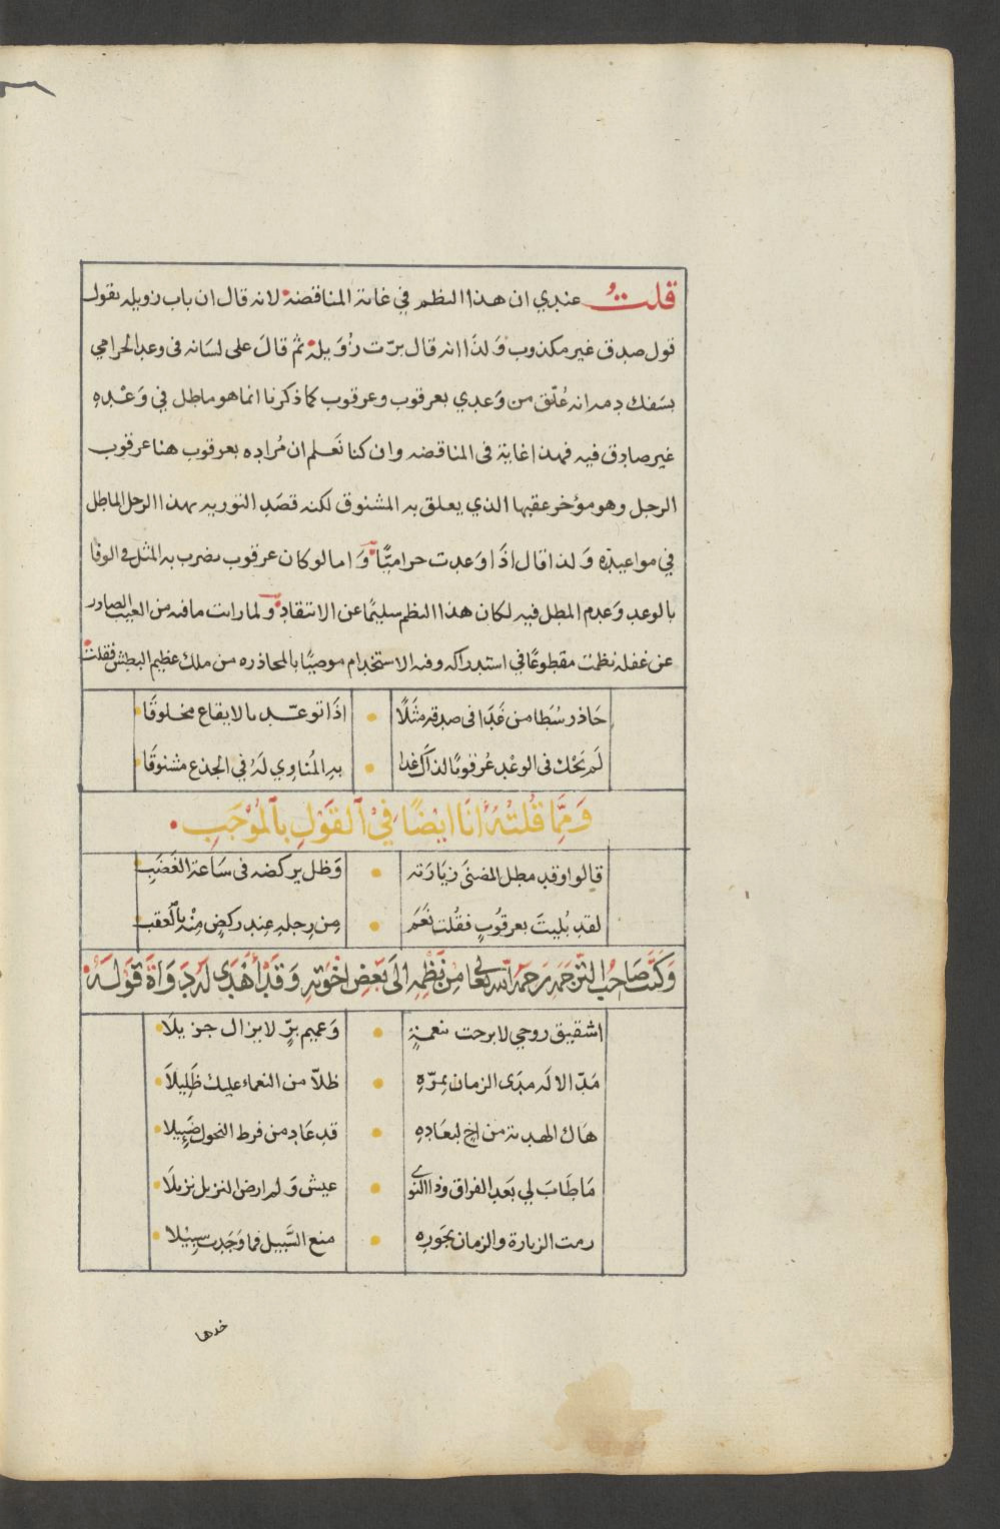 قلتُ عندي ان هذا النظم في غاية المناقضة لانه قال ان باب زويله بقول
قول صدق غير مكذوب وَلذَا انه قال برّت زُوَيلة ثم قالَ على لسَانه فى وعد الحرامي
بسَفك دمه انه عُلّق من وَعدي بعرقوب وعرقوب كما ذكرنا انما هو ماطل في وَعْدِهِ
غير صادق فيه فهذا غاية فى المناقضه وان كنا نَعلم ان مُراده بعرقوب هنا عرقوب
الرجل وهو مؤخر عقبها الذي يعلق به المشنوق لكنه قصَد التوريه بهذا الرجل الماطل
في مواعيدِه وَلذا قال اذَا وَعدت حرامِيًّا وَاما لو كان عرقوب يضرب به المثل فى الوفا
بالوعد وَعدم المطل فيه لكان هذا النظم سليمًا عن الانتقادِ ولما رايت ما فيه من العيب الصادر
عن غفله نظمْت مقطوعًا في استدراكه وفيه الاستخدام موصيًا بالمحاذره من ملك عظيم البطش فقلت
حَاذر سُطا من غَدَا فى صدقه مثَلًا اذَا توعّد بالايقاع مخلوقَا
لَم يَحْك فى الوعْد عُرقوبًا لذاكَ غدا به المُناوِي لَهُ في الجذع مشنوقَا
وَمِمَّا قُلْتُهُ أنَا ايْضًا فِيْ الْقَوْلِ بِالْمُوْجَبِ
قالوا وقد مطل المضنَى زيَارَته وَظل يركضه فى سَاعة الغَضَبِ
لقد بُليتَ بعرقُوبٍ فقُلت نَعَم مِن رِجلهِ عِند ركضٍ مِنْه بالْعَقبِ
وَكَتَبَ صَاحِبُ التَّرْجَمَةِ رَحِمَهُ اللّه تعَالى مِنْ نَظْمِهِ الَى بَعْضِ اخْوَتِهِ وَقَدْ أَهْدَى لَهُ دَوَاةً قَوْلَهُ
اشقيق روحي لا برحت بنعمةٍ وَعميم برٍّ لا يزال جزيلَا
مَدّ الالَه مدَى الزمان بمرّهِ ظلّا من النعماء عليك ظَلِيلَا
هَاك الهدية من اخٍ لبعَادِهِ قد عَاد من فرط النحول ضَئِيلا
مَا طَابَ لي بَعد الفراق وذا النوى عيش وَلم ارض النزيل نزيلَا
رمت الزيارة والزمان بجَورِهِ منع السَّبيل فما وَجَدت سبِيْلا
خدها